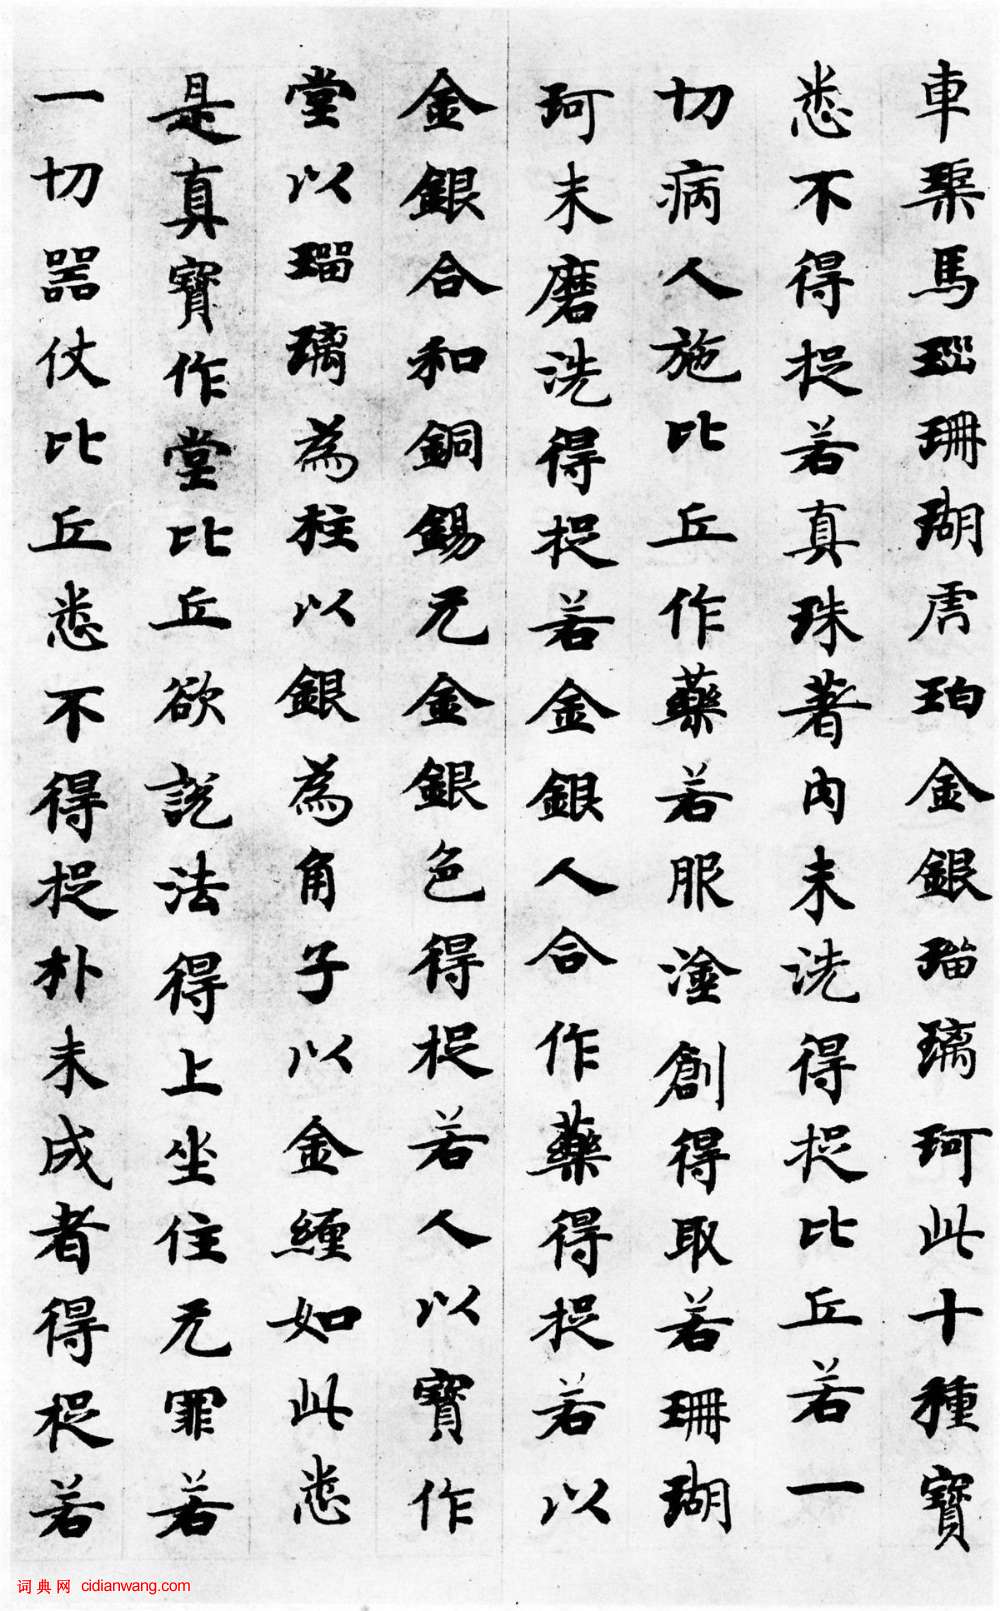 車磲馬瑙珊瑚虎珀金銀瑠璃珂此十種寶
悉不得捉若真珠著内末洗得捉比丘若一
切病人施比丘作藥若服塗創得取若珊瑚
珂末磨洗得捉若金銀人合作藥得捉若以
金銀合和銅錫无金銀色得捉若人以寶作
堂以瑠璃為柱以銀為角子以金纏如此悉
是真寶作堂比丘欲說法得上坐住无罪若
一切器仗比丘悉不得捉朴未成者得捉若
词典网 cidianwang.com